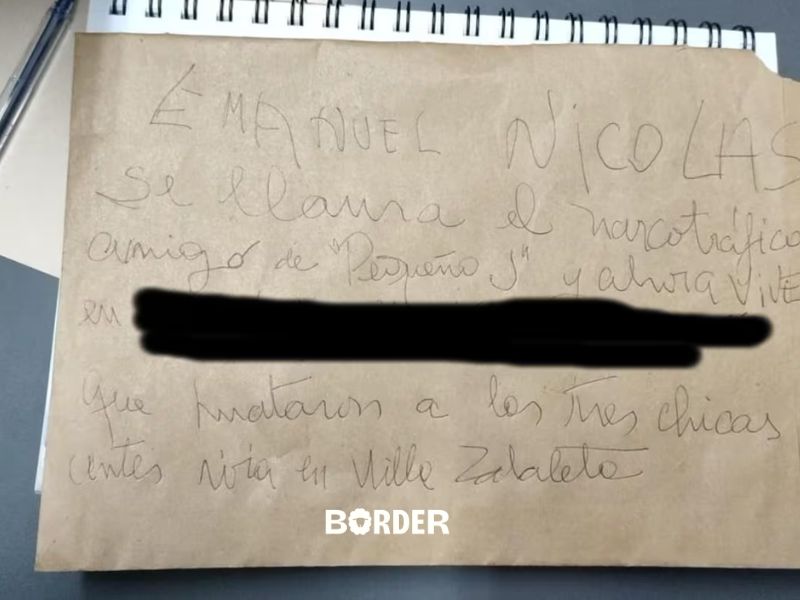 EMANUEL NICOLAS
se llama el narcotráfico
amigo de "Pequeño J" y ahora VIVE
en
que mataron a las tres chicas
antes vivía en Villa Zabaleta
BORDER